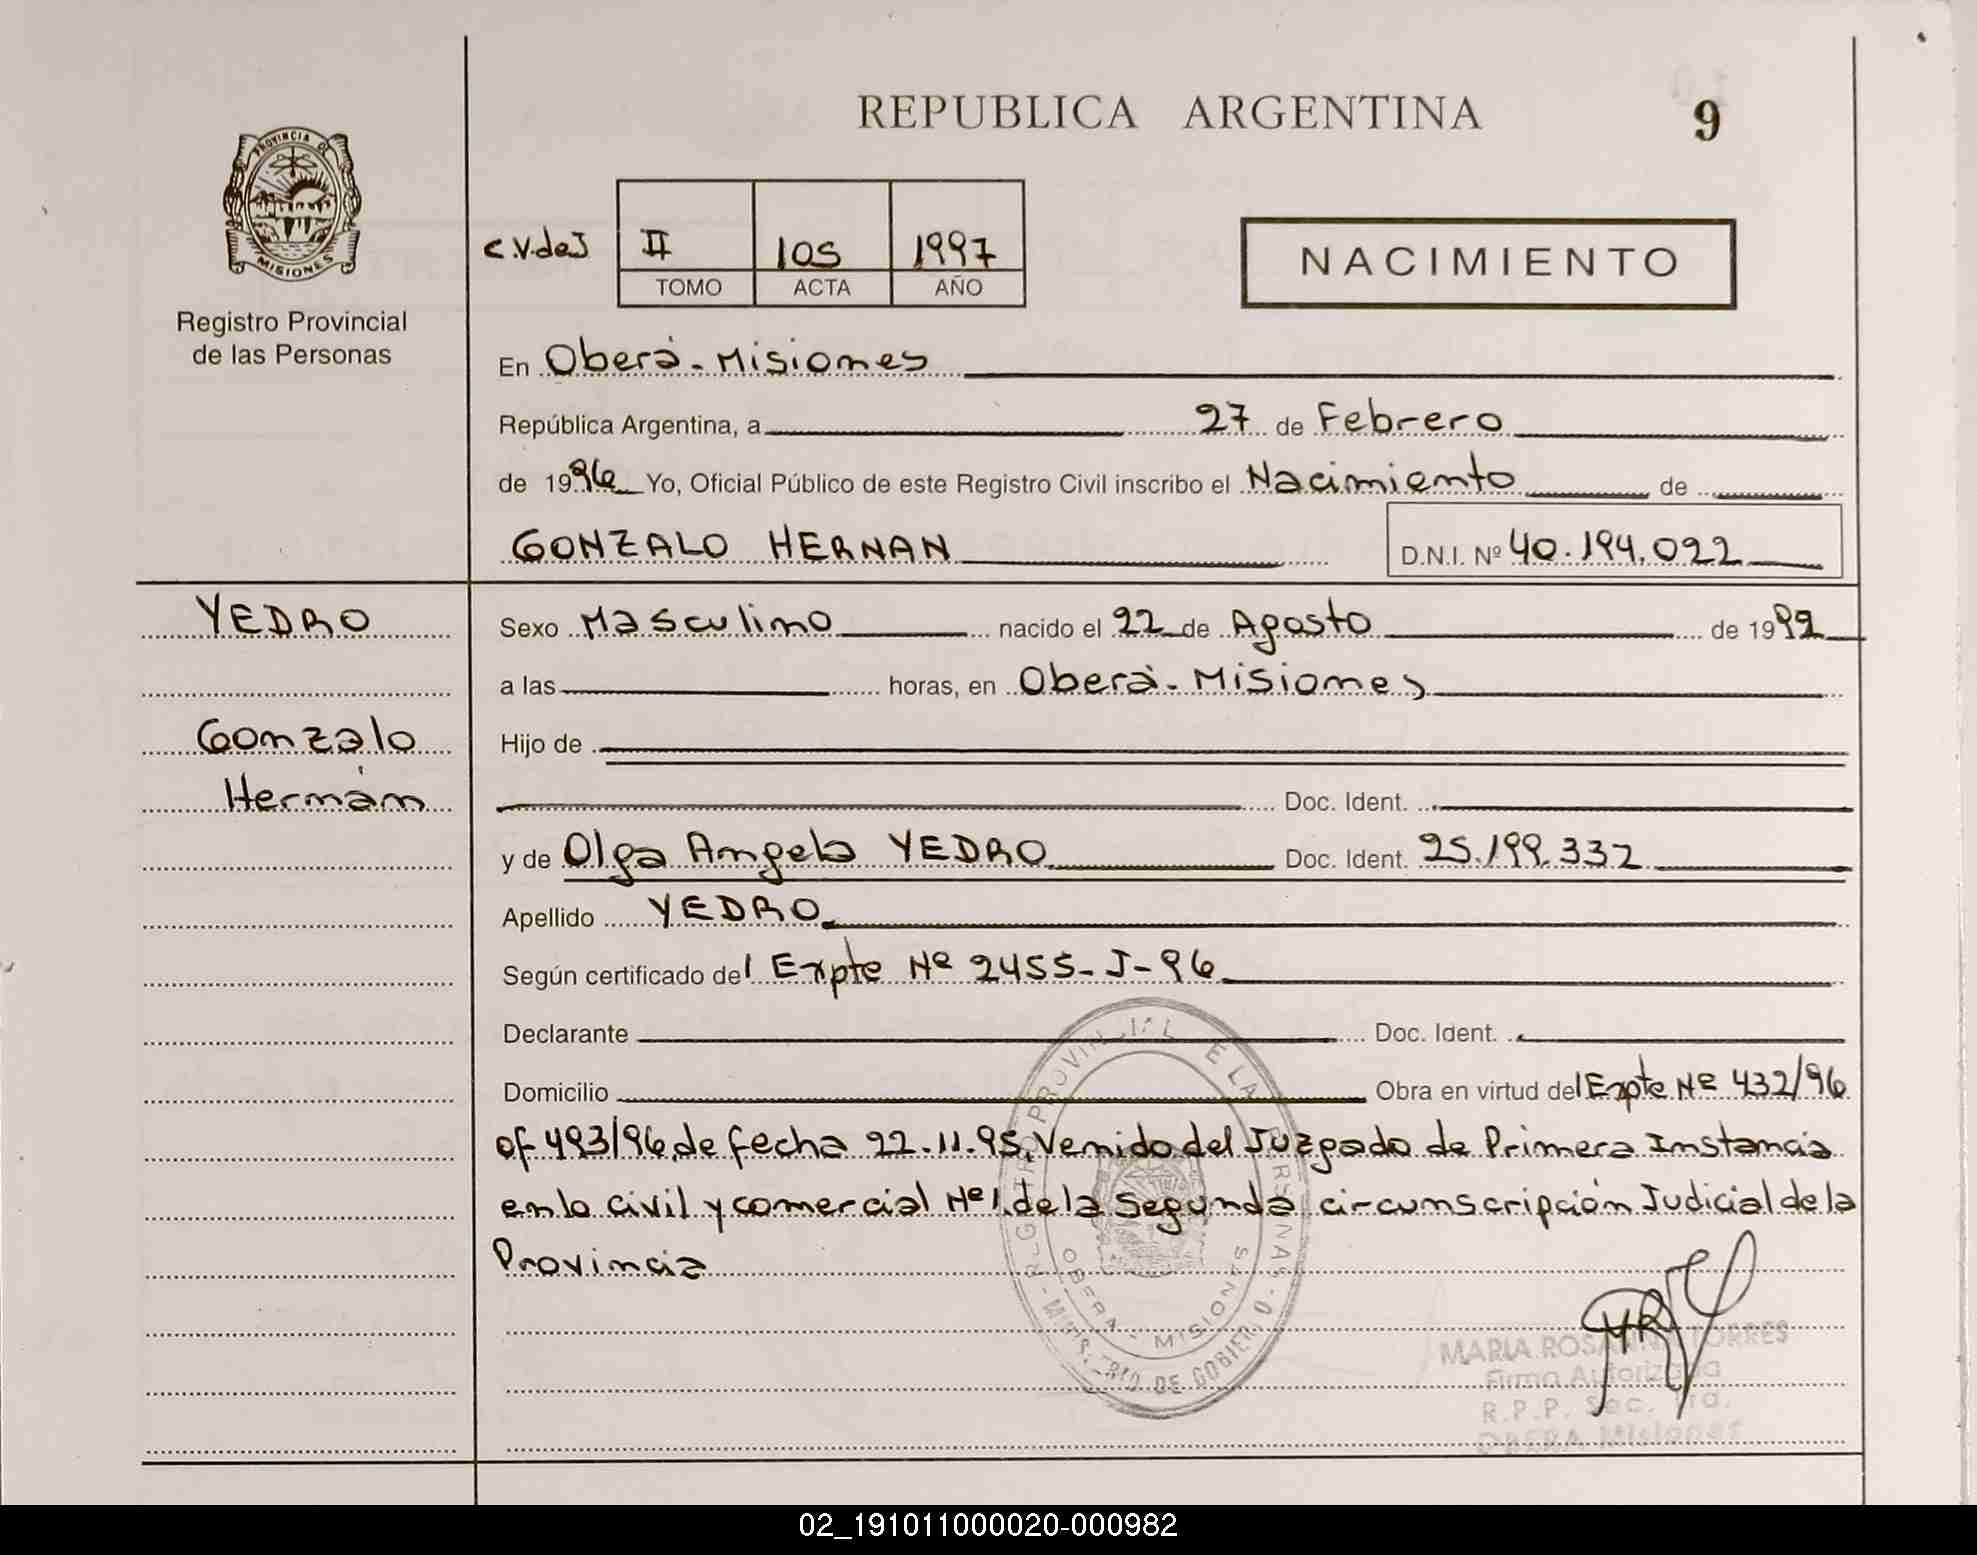 REPUBLICA ARGENTINA
9
PROVINCIA DE
MISIONES
Registro Provincial
de las Personas
C.V.deJ
II 105 1997
TOMO ACTA AÑO
NACIMIENTO
En Oberá - Misiones
República Argentina, a 27 de Febrero
de 1996 Yo, Oficial Público de este Registro Civil inscribo el Nacimiento de
GONZALO HERNAN D.N.I. Nº 40.194.022
YEDRO
Gonzalo
Hernán
Sexo Masculino nacido el 22 de Agosto de 1992
a las horas, en Oberá - Misiones
Hijo de
Doc. Ident.
y de Olga Angela YEDRO Doc. Ident. 25.199.332
Apellido YEDRO
Según certificado del Expte Nº 2455-J-96
Declarante Doc. Ident.
Domicilio Obra en virtud del Expte Nº 432/96
of 493/96, de fecha 22.11.95, Venido del Juzgado de Primera Instancia
en lo civil y comercial Nº 1, de la Segunda circunscripción Judicial de la
Provincia
OBERA - MISIONES
MINISTERIO DE GOBIERNO
MARIA ROSANNA TORRES
Firma Autorizada
R.P.P. Sec. 1ra.
OBERA Misiones
02_191011000020-000982